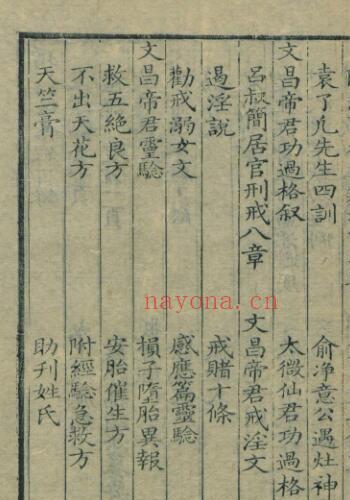 袁了凢先生四訓　俞净意公遇灶神
文昌帝君功過格叙　太微仙君功過格
呂叔簡居官刑戒八章　文昌帝君戒淫文
遏淫說　戒賭十條
勸戒溺女文　感應篇靈驗
文昌帝君靈驗　損子墮胎異報
救五絕良方　安胎催生方
不出天花方　附經驗急救方
天竺膏　助刋姓氏
nayona.cn